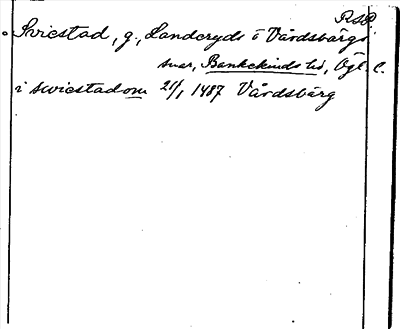 RSP
Svicstad, g., Landeryds o Vårdsbärgs
snar, Bankekinds hd, Ögl. C.
i swicstadom 21/1 1487 Vårdsbärg